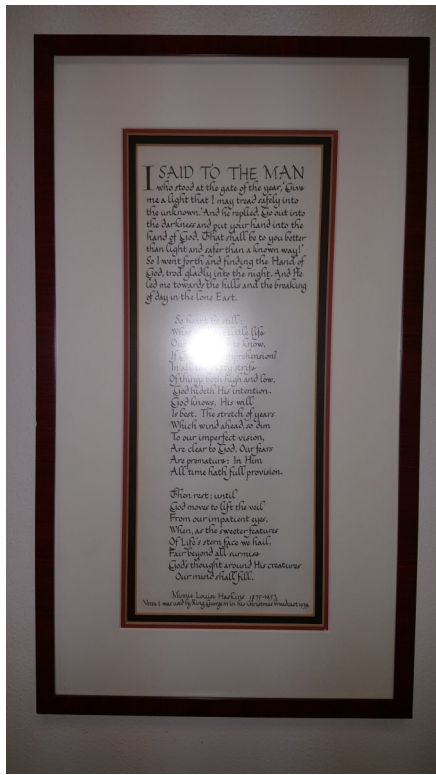 I SAID TO THE MAN
who stood at the gate of the year, 'Give
me a light that I may tread safely into
the unknown.' And he replied, 'Go out into
the darkness and put your hand into the
hand of God. That shall be to you better
than light and safer than a known way!'
So I went forth and finding the Hand of
God, trod gladly into the night. And He
led me towards the hills and the breaking
of day in the lone East.
So heart be still:
What little life
Our to know,
If comprehension?
In all strife
Of things both high and low,
God hideth His intention.
God knows. His will
Is best. The stretch of years
Which wind ahead, so dim
To our imperfect vision,
Are clear to God. Our fears
Are premature: In Him
All time hath full provision.
Then rest; until
God moves to lift the veil
From our impatient eyes,
When, as the sweeter features
Of Life's stern face we hail,
Fair beyond all surmise
God's thought around His creatures
Our mind shall fill.
Minnie Louise Haskins 1875-1957
Verse 1 was used by King George VI in his Christmas broadcast 1939.